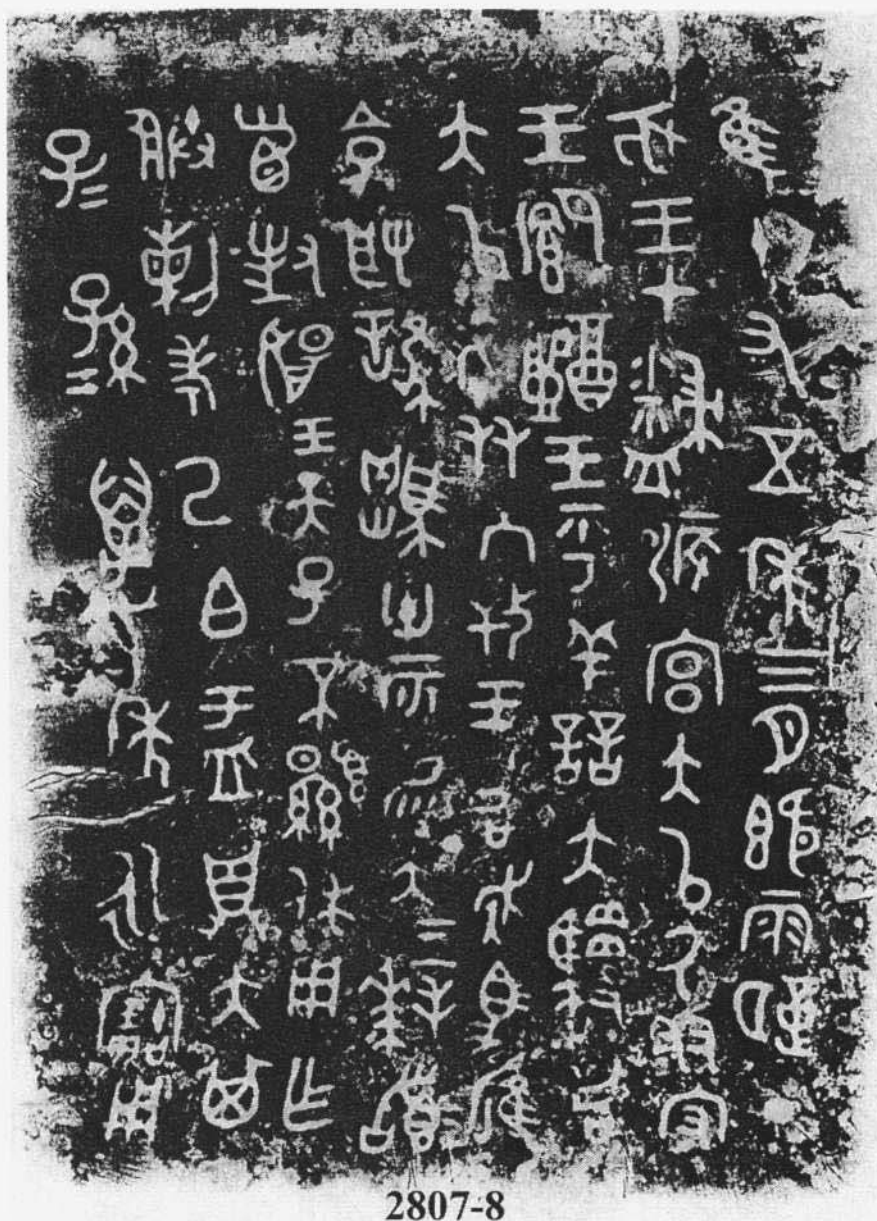 隹十又五年三月既霸丁
亥王才𥎦侲宮大以厥友守
王鄉醴王乎善大𩁹召
大以厥友入攼王召走馬雁
令取䮄卅二匹易大=拜𩒨
首對揚王天子不顯休用乍
朕剌考己白盂鼎大其
子=孫=萬年永寶用
2807-8